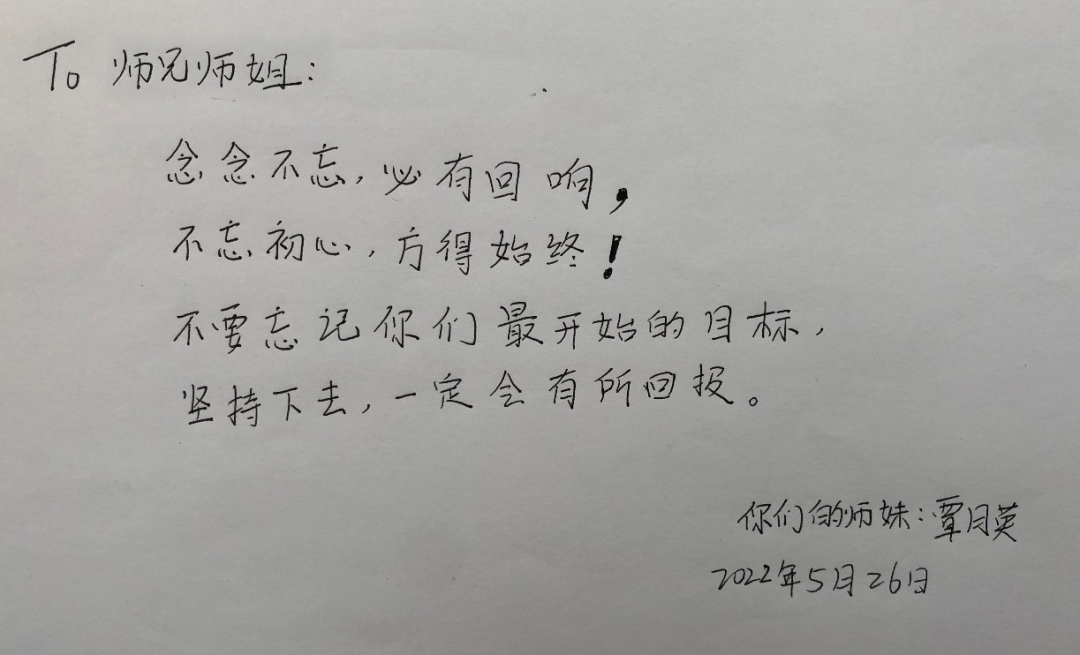 To 师兄师姐：
念念不忘，必有回响，
不忘初心，方得始终！
不要忘记你们最开始的目标，
坚持下去，一定会有所回报。
你们的师妹：覃月英
2022年5月26日